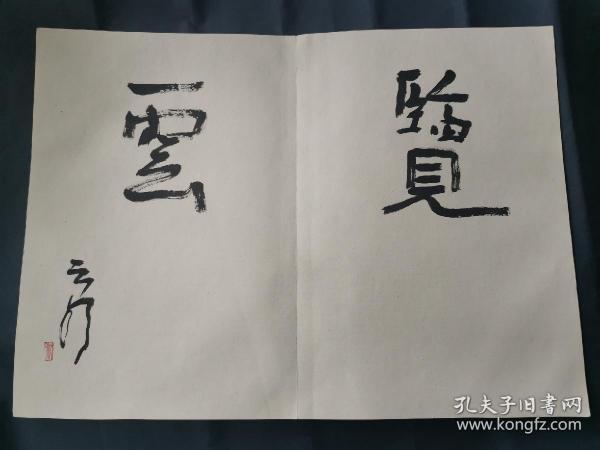 覽
雲
孔夫子旧書网
www.kongfz.com